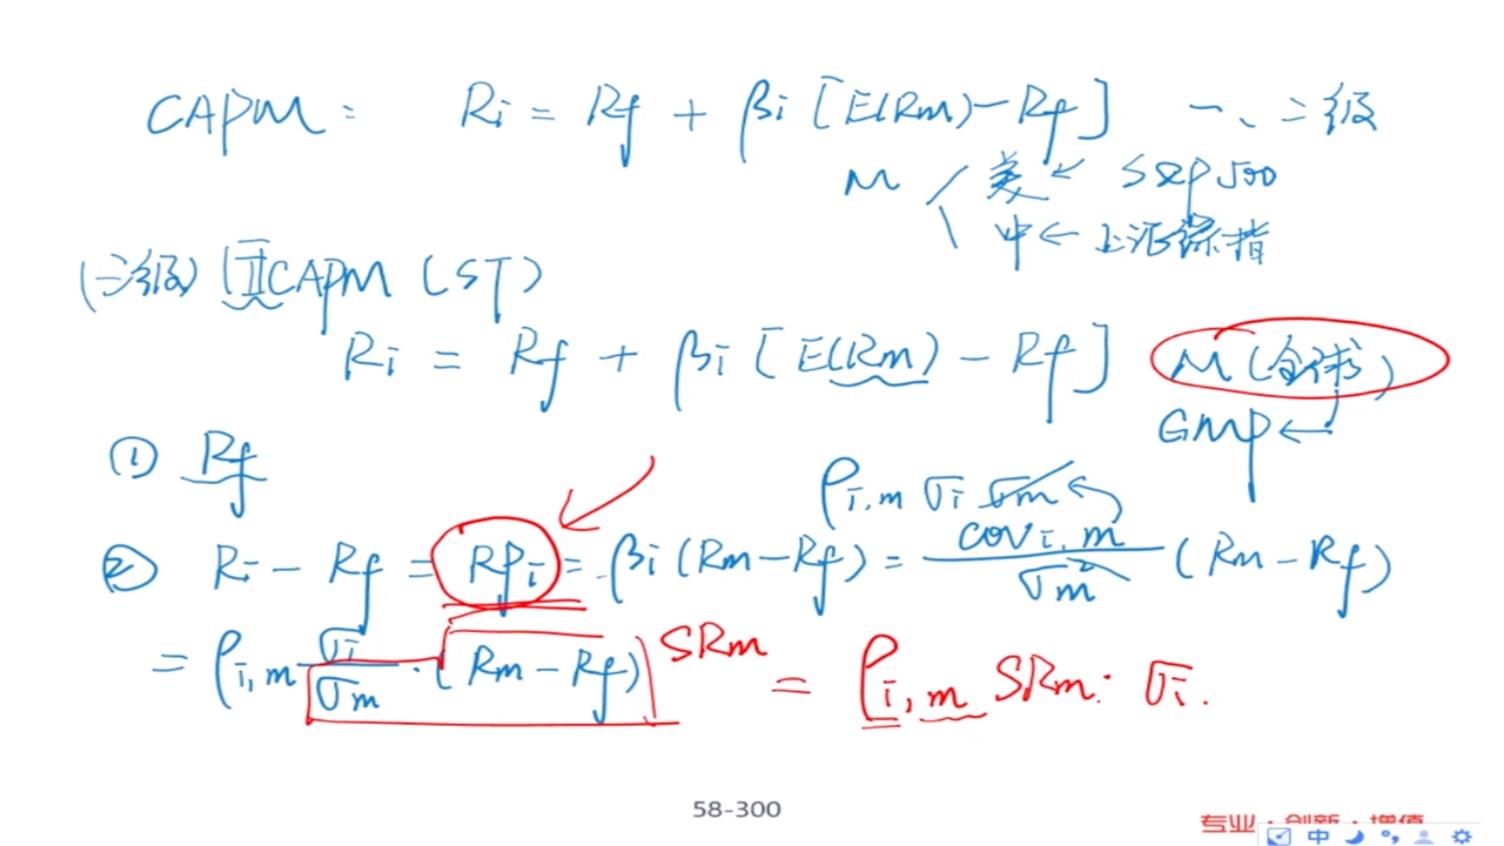 CAPM: Ri = Rf + βi [E(Rm) - Rf] 一、二级
M 美 ← S&P500
中 ← 上证综指
(三级) ICAPM (ST)
Ri = Rf + βi [E(Rm) - Rf] M (全球)
GMP ←
① Rf
ρi,m σi σm
② Ri - Rf = RPi = βi (Rm - Rf) = covi,m / σm² (Rm - Rf)
= ρi,m σi / σm · (Rm - Rf) SRm = ρi,m SRm · σi.
58-300
专业·创新·增值
中